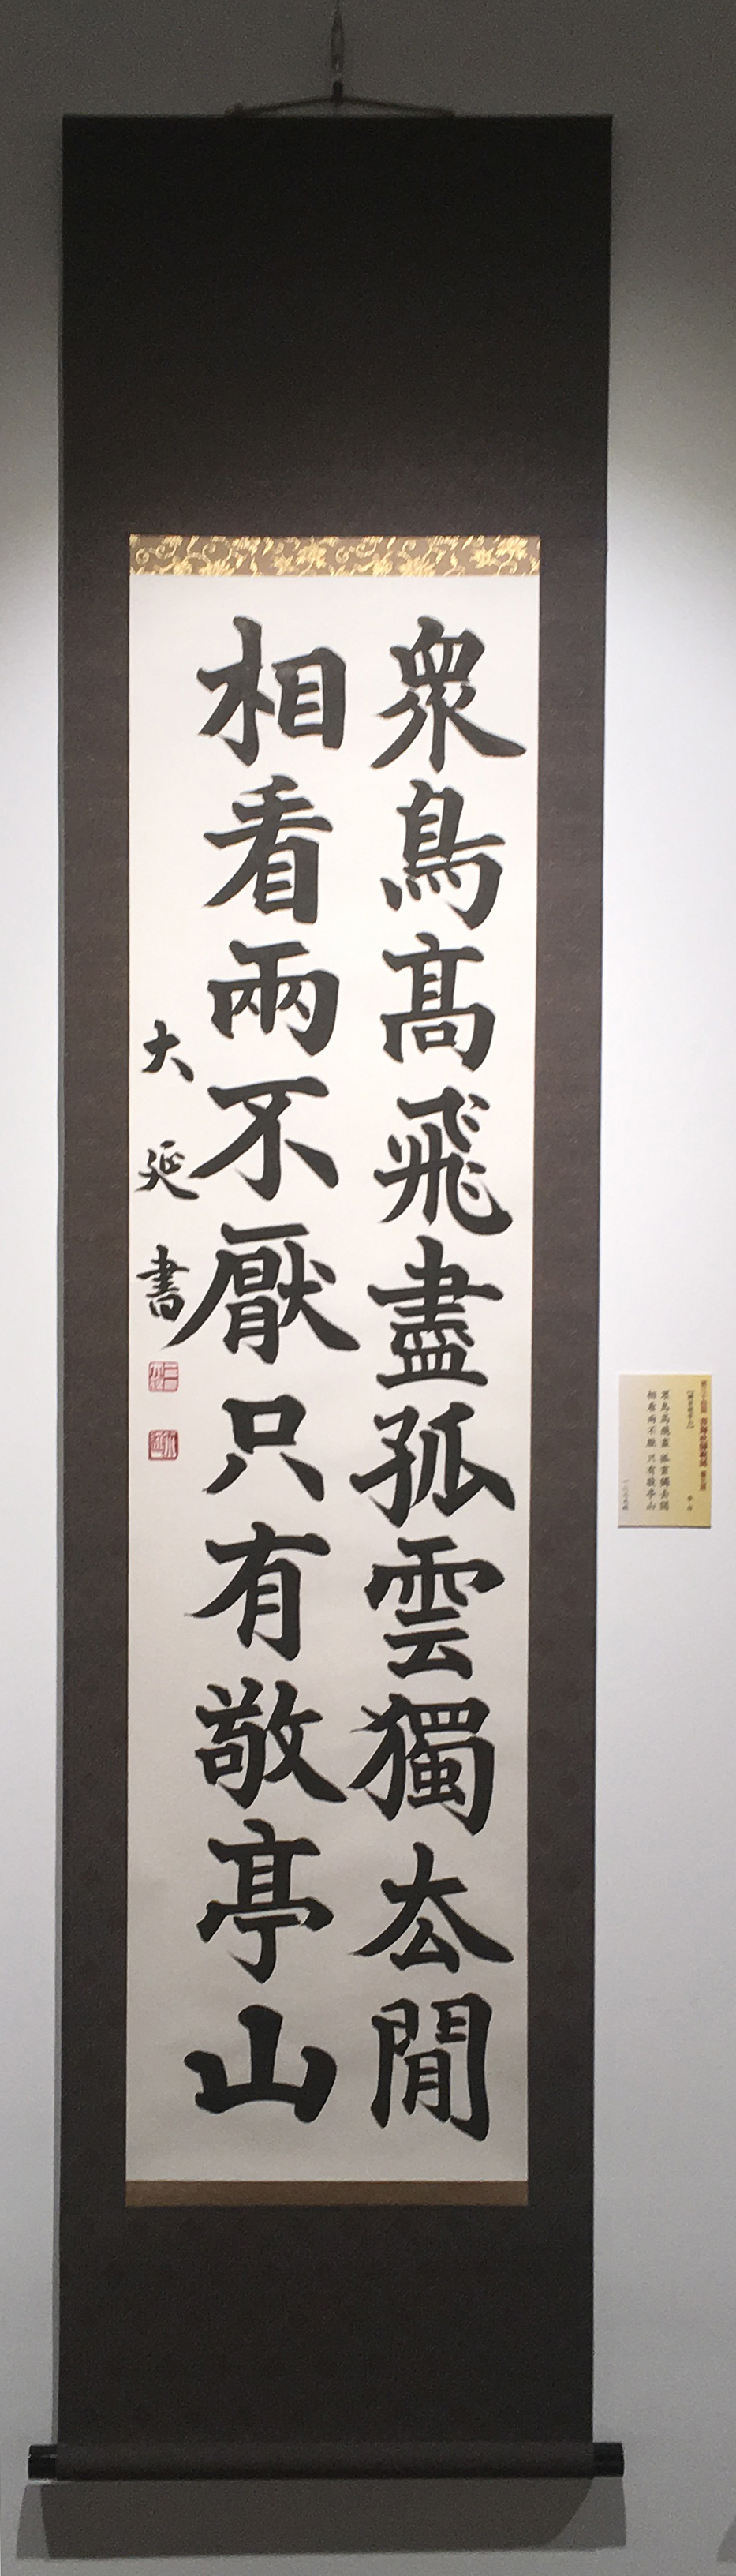 眾鳥高飛盡孤雲獨厺閒
相看兩不厭只有敬亭山
大延書
眾鳥高飛盡 孤雲獨去閒
相看兩不厭 只有敬亭山